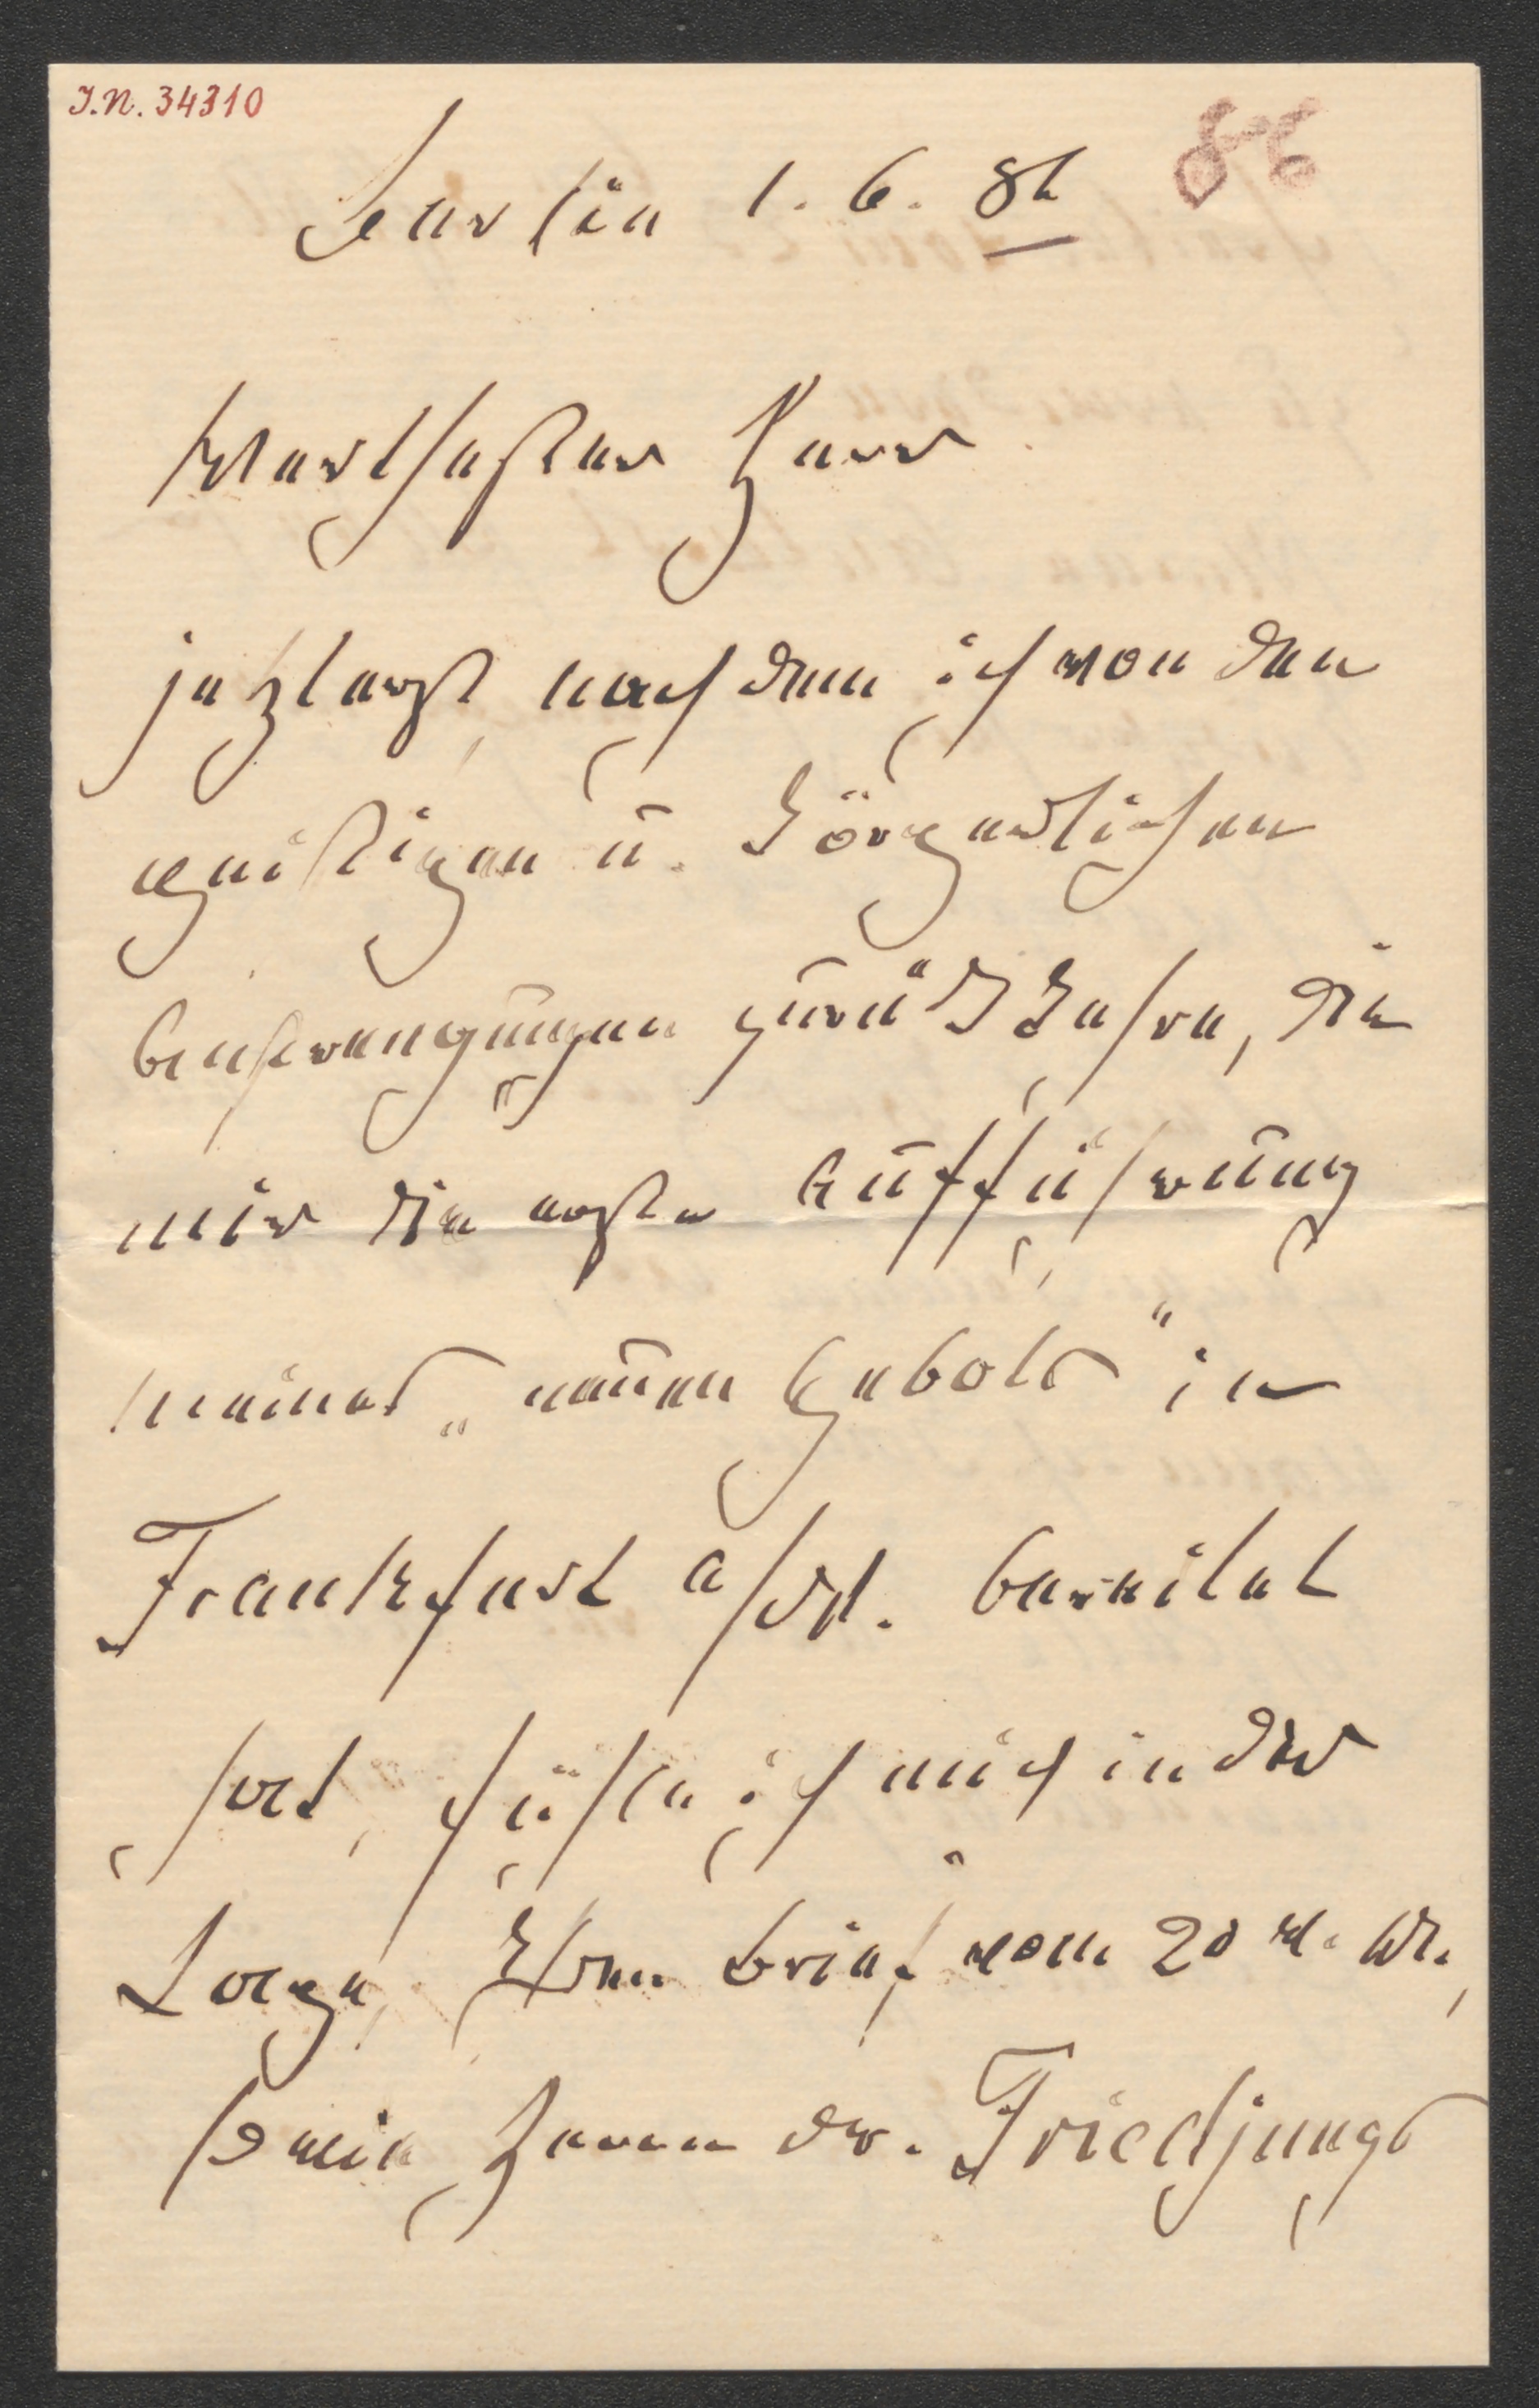 J.N. 34310
86
Berlin 1. 6. 86
Werthester Herr
jetzt erst, nachdem ich von den
geistigen u. körperlichen
Anstrengungen zurückkehre, die
mir die erste Aufführung
meines „neuen Gebots" in
Frankfurt a/M. bereitet
hat, fühle ich mich in der
Lage, Ihren Brief vom 20 v. M.,
sowie Herrn Dr. Friedjungs